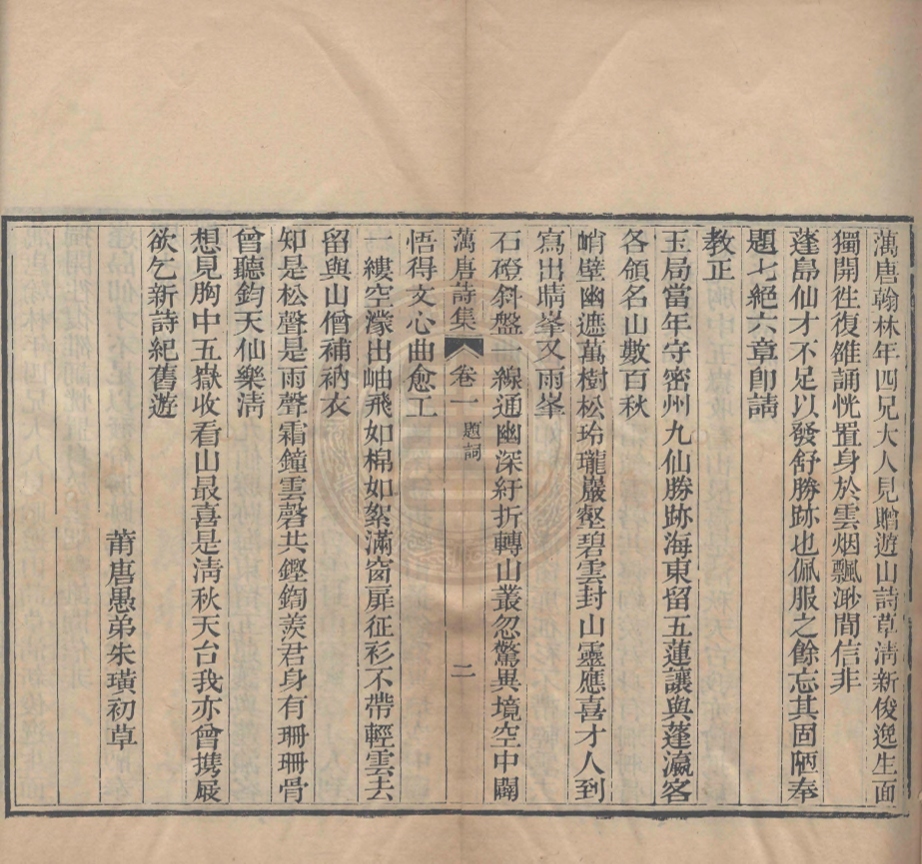 藕唐翰林年四兄大人見贈遊山詩草清新俊逸生面
獨開徃復雒誦恍置身於雲烟飄渺間信非
蓬島仙才不足以發舒勝跡也佩服之餘忘其固陋奉
題七絕六章即請
教正
玉局當年守密州九仙勝跡海東留五蓮讓與蓬瀛客
各領名山數百秋
峭壁幽遮萬樹松玲瓏巖壑碧雲封山靈應喜才人到
寫出晴峯又雨峯
石磴斜盤一線通幽深紆折轉山叢忽驚異境空中闢
藕唐詩集 卷一 題詞 二
悟得文心曲愈工
一縷空濛出岫飛如棉如絮滿窗扉征衫不帶輕雲去
留與山僧補衲衣
知是松聲是雨聲霜鐘雲磬共鏗鍧羨君身有珊珊骨
曾聽鈞天仙樂淸
想見胸中五嶽收看山最喜是淸秋天台我亦曾携屐
欲乞新詩紀舊遊
莆唐愚弟朱璜初草